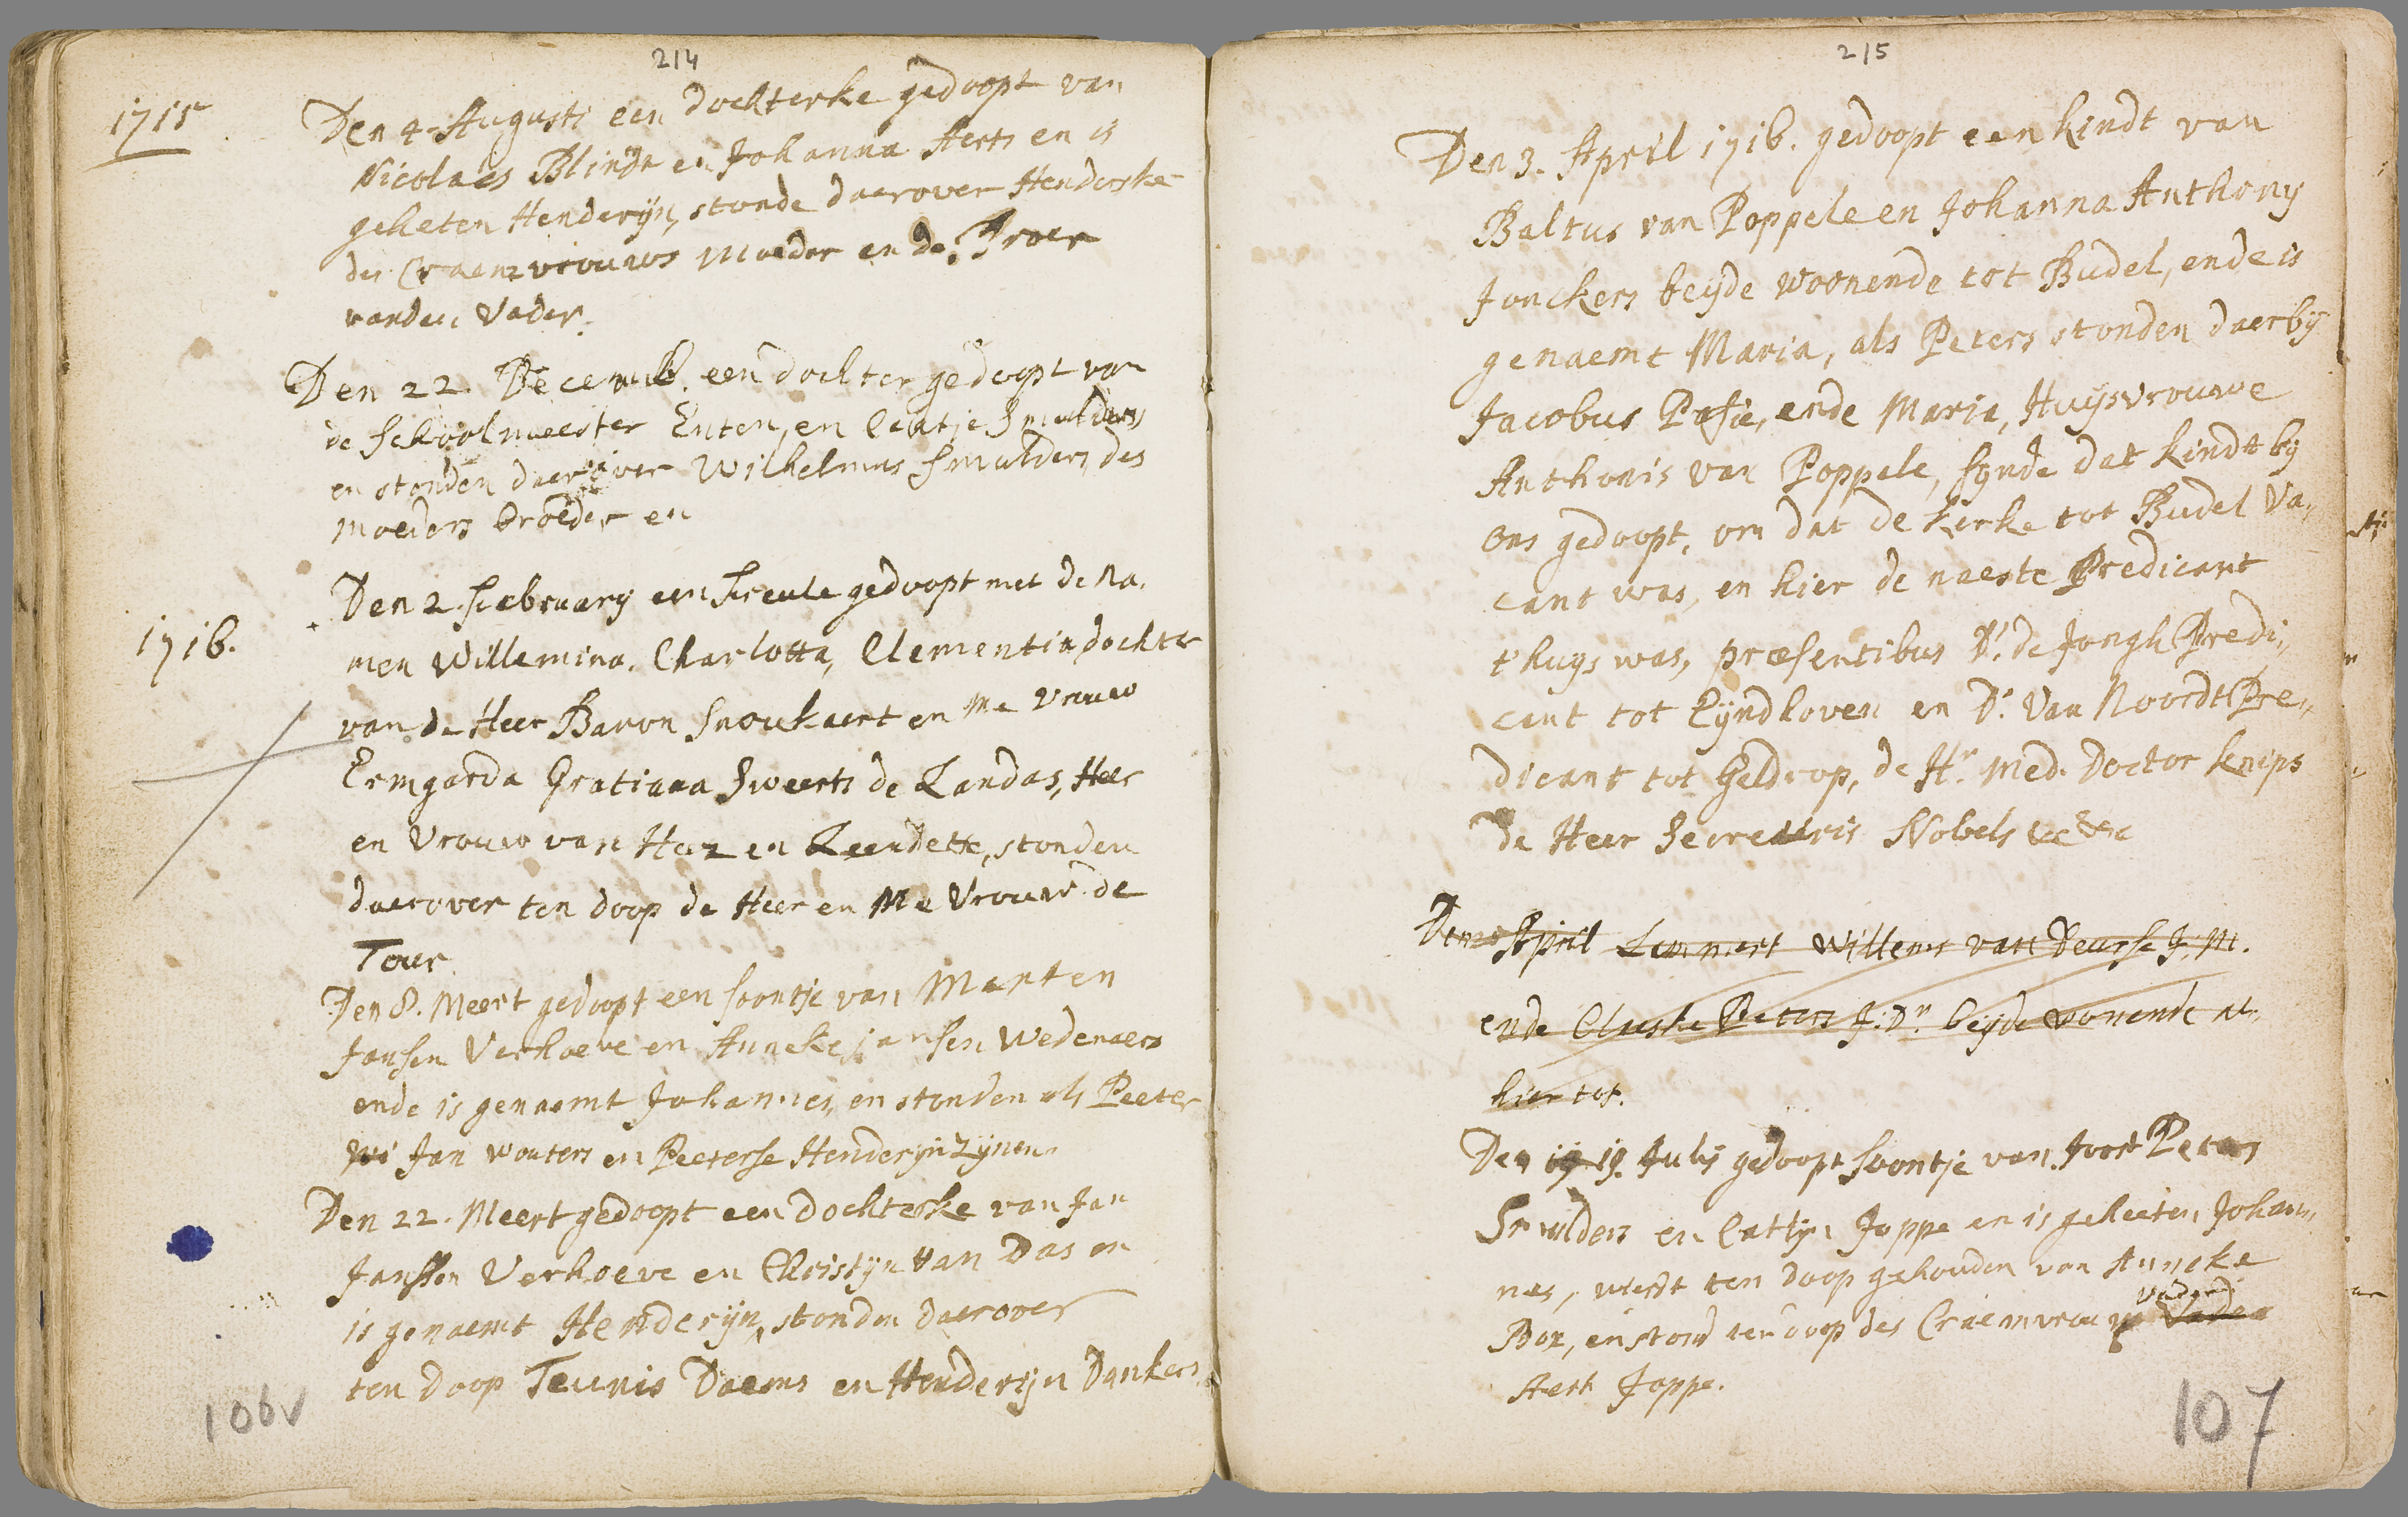 214
1715
Den 4. Augusti een dochterke gedoopt van
Nicolaes Blindt en Johanna Aerts en is
geheten Henderijn, stonde daerover Henderske
des Craemvrouws moeder en de Broer
vanden Vader.
Den 22 Decemb. een dochter gedoopt van
de schoolmeester Enten, en Eentje Smulders
en stonden daerover Wilhelmus Smulders, des
moeders broeder en
1716.
Den 2. February een freule gedoopt met de Na,
men Willemina, Charlotta, Clementia, dochter
van de Heer Baron Snoukaert en me vrouw
Ermgarda Gratiana Sweerts de Landas, Heer
en Vrouw van Heez en Leendette, stonden
daerover ten doop de Heer en Me Vrouw de
Tour
Den 8. Meert gedoopt een soontje van Marten
Jansen Verhoeve en Anneke jansen Wedenaers
ende is genaemt Johannes, en stonden als Peeter
Jan Wouters en Peeterse Henderijn Zijnen
Den 22. Meert gedoopt een dochterke van Jan
Janssen Verhoeve en Christijn van Das en
is genaemt Henderijn, stonden daerover
ten doop Teunis Daems en Henderijn Dankers
106v
215
Den 3. April 1716. gedoopt een kindt van
Baltus van Poppele en Johanna Anthony
Jonckers beijde woonende tot Budel, ende is
genaemt Maria, als Peters stonden daerbij
Jacobus Pasie, ende Maria, Huijsvrouwe
Anthonis van Poppele, sijnde dat kindt bij
ons gedoopt, om dat de kerke tot Budel va,,
cant was, en hier de naeste Predicant
t'huijs was, præsentibus Ds. de Jongh Predi,,
cant tot Eijndhoven en Ds. Van Noordt Pre,,
dicant tot Geldrop, de Hr. Med. Doctor knips
de Heer Secretaris Nobels
Den April Lemmert Willems van Deurse J. M.
ende Elueske Peters J. Dr. beijde wonende al,,
hier tot.
Den 19 19. Julij gedoopt soontje van Joost Peters
Smulders en Catlijn Joppe en is geheeten Johan,,
nes, wierdt ten doop gehouden van Anneke
Box, en stond ten doop des Craemvrouw vader Vader
Aert Joppe.
107